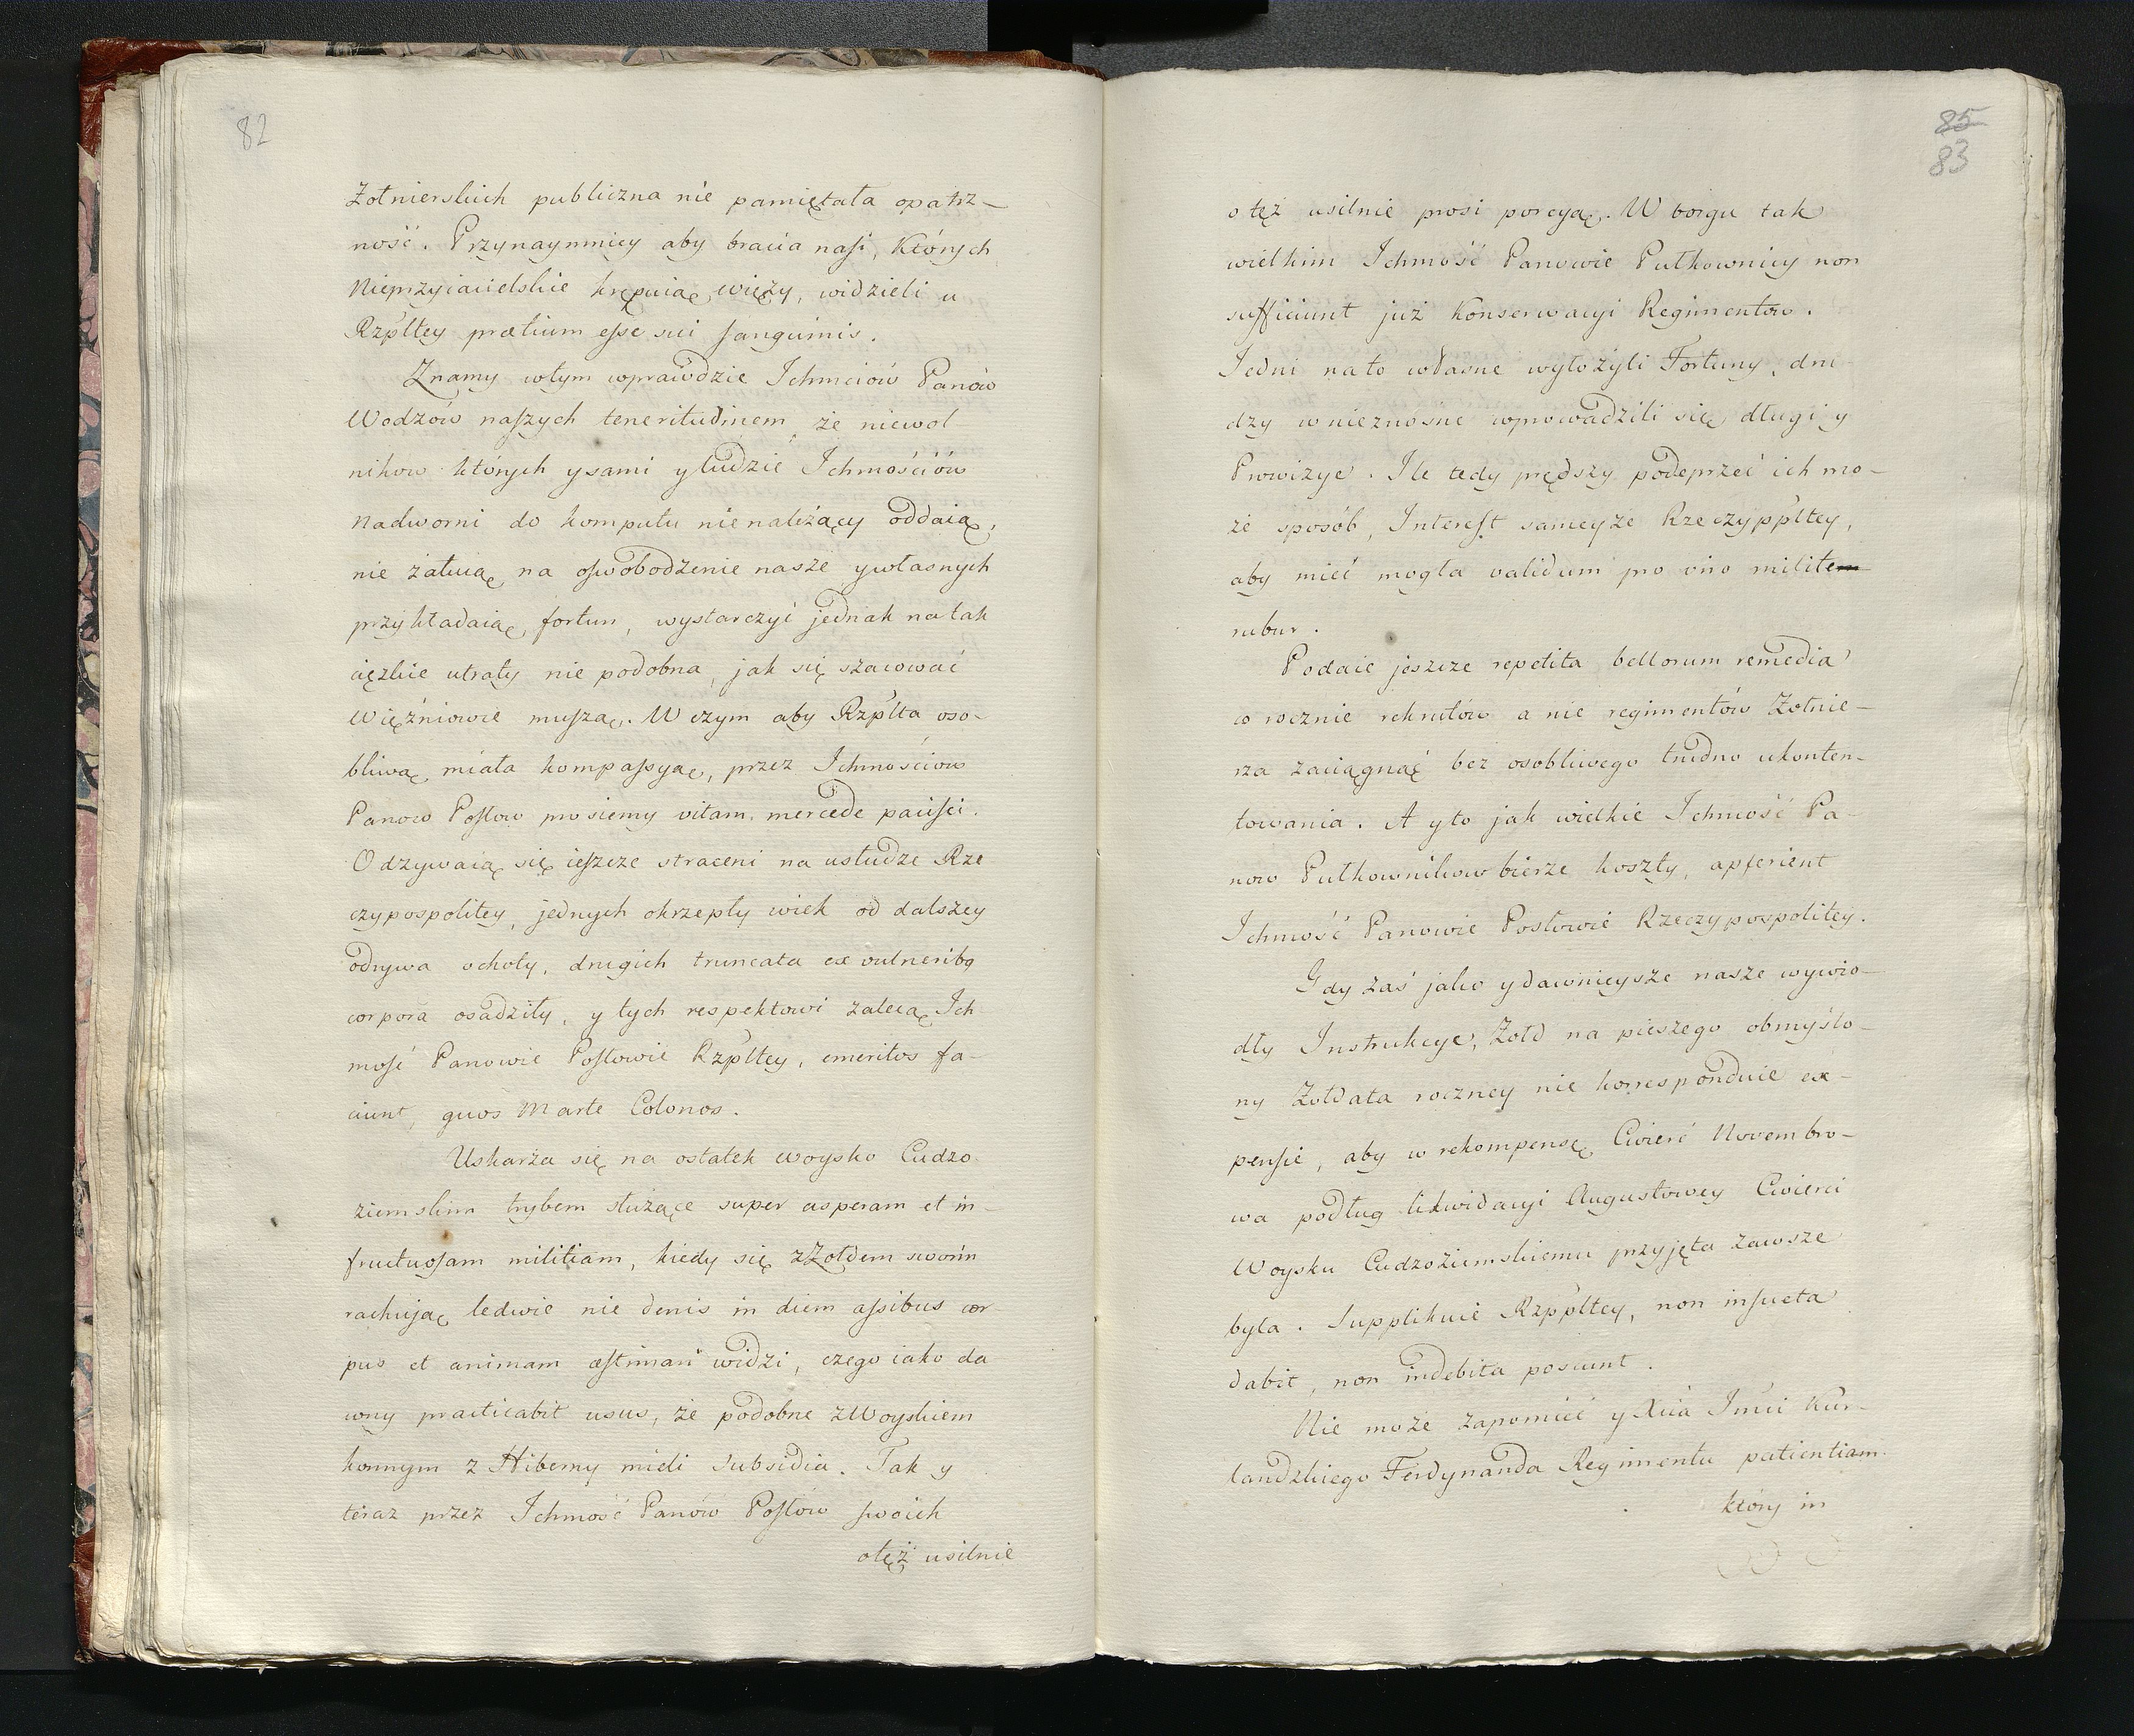 82
Żołnierskich publiczna nie pamiętała opatrz-
ność. Przynaymniey aby bracia nasi, których
Nieprzyiacielskie krępuią więzy, widzieli u
Rzpltey pretium esse sui sanguinis.
Znamy wtym wprawdzie Ichmciów Panów
Wodzów naszych teneritudinem, że niewol
ników których ysami y ludzie Ichmościów
Nadworni do komputu nienależący oddaią,
nie żałuią na oswobodzenie nasze ywłasnych
przykładaią fortun, wystarczyć jednak na tak
ciężkie utraty nie podobna, jak się szacować
Więźniowie muszą. W czym aby Rzplta oso-
bliwą miała kompassyą, przez Ichmościów
Panow Posłow prosiemy vitam mercede pacisci.
Odzywaią się ieszcze straceni na usłudze Rze
czypospolitey, jednych okrzepły wiek od dalszey
odrywa ochoty, drugich truncata ex vulneribq
corpora osadziły, y tych respektowi zalecą Ich
mość Panowie Posłowie Rzpltey, emeritos fa-
ciunt, quos Marte Colonos.
Uskarża się na ostatek woysko Cudzo-
ziemskim trybem służące super asperam et in-
fructuosam militiam, kiedy się zŻołdem swoim
rachując ledwie nie denis in diem assibus cor
pus et animam æstimari widzi, czego iako da
wny practicabit usus, że podobne zWoyskiem
konnym z Hiberny mieli subsidia. Tak y
teraz przez Ichmość Panów Posłów swoich
otęż usilnie
85
83
o tęż usilnie prosi porcyą. W borgu tak
wielkim Ichmość Panowie Pułkownicy non
sufficiunt już konserwacyi Regimentow.
Jedni na to własne wyłożyli Fortuny, dru-
dzy w nieznośne wprowadzili się długi y
Prowizye. Ile tedy prędszy podeprzeć ich mo-
że sposób, Interest sameyże Rzeczyppltey,
aby mieć mogła validum pro viro milite
rubur.
Podaie jeszcze repetita bellorum remedia
co rocznie rekrutów a nie regimentów Żołnie-
rza zaciągnąć bez osobliwego trudno ukonten-
towania. A yto jak wielkie Ichmość Pa-
now Pułkownikow bierze koszty, apferient
Ichmość Panowie Posłowie Rzeczypospolitey.
Gdy zaś jako ydawnieysze nasze wywio-
dły Instrukcye, Żołd na pieszego obmyślo-
ny Żołdata roczney nie korresponduie ex-
pensie, aby w rekompensę Cwierć Novembro-
wa podług likwidacyi Augustowey Cwierci
Woysku Cudzoziemskiemu przyjęta zawsze
byla. Supplikuie Rzppltey, non insueta
dabit, non indebita poscunt.
Nie może zapomieć y Xcia Jmci Kur-
landzkiego Ferdynanda Regimentu patientiam
który in